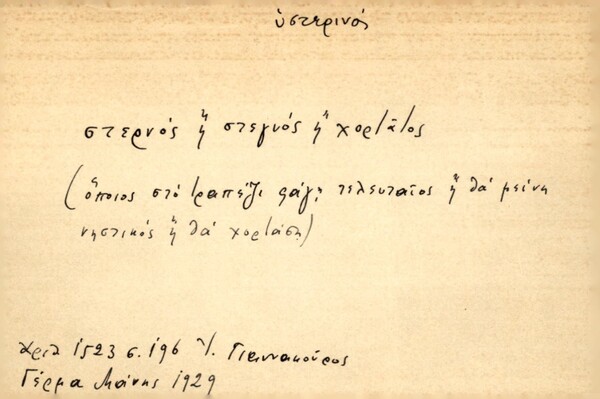 ὑστερινός
στερνός ἢ στεγνός ἢ χορτᾶτος
(ὅποιος στό τραπέζι φάγῃ τελευταῖος ἢ θά μείνῃ
νηστικός ἢ θά χορτάσῃ)
1523 σ. 196 Γιαννακοῦρος
Γέρμα Μάνης 1929